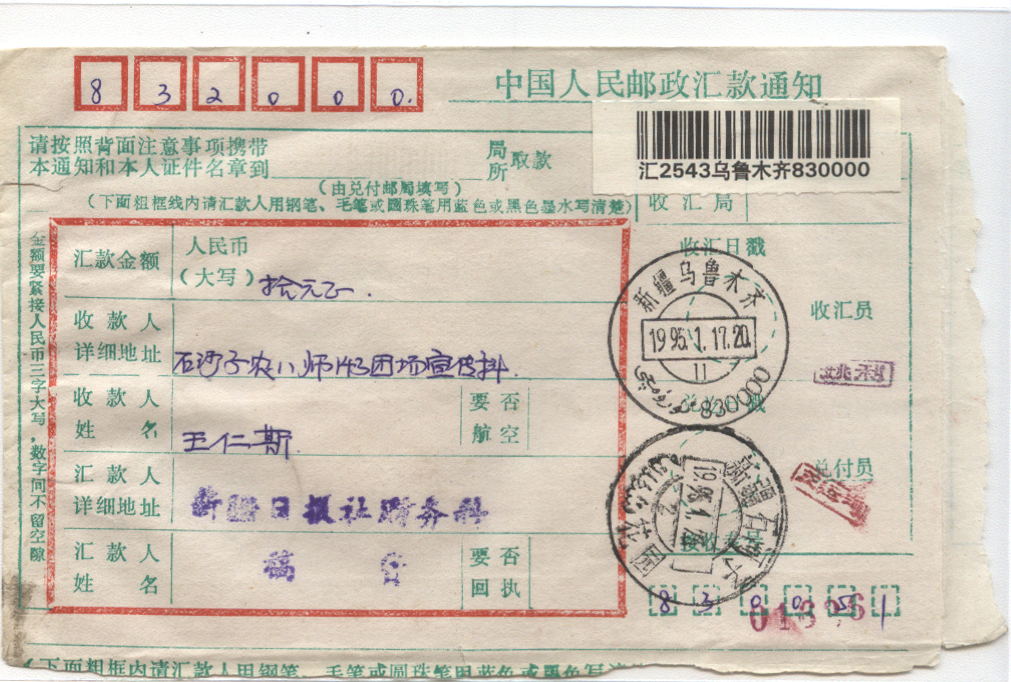 832000.
中国人民邮政汇款通知
汇2543乌鲁木齐830000
请按照背面注意事项携带
本通知和本人证件名章到
局
所
取款
(由兑付邮局填写)
(下面粗框线内请汇款人用钢笔、毛笔或圆珠笔用蓝色或黑色墨水写清楚)
收汇局
金额要紧接人民币三字大写,数字间不留空隙
汇款金额
人民币
(大写)
拾元正.
收款人
详细地址
石河子农八师143团场宣传科.
收款人
姓名
王仁斯.
要否
航空
汇款人
详细地址
新疆日报社财务科
汇款人
姓名
稿
要否
回执
收汇日戳
新疆乌鲁木齐
1995.1.17.20
11
830000
收汇员
兑付员
新疆石河子
830051
(下面粗框内请汇款人用钢笔、毛笔或圆珠笔用蓝色或黑色